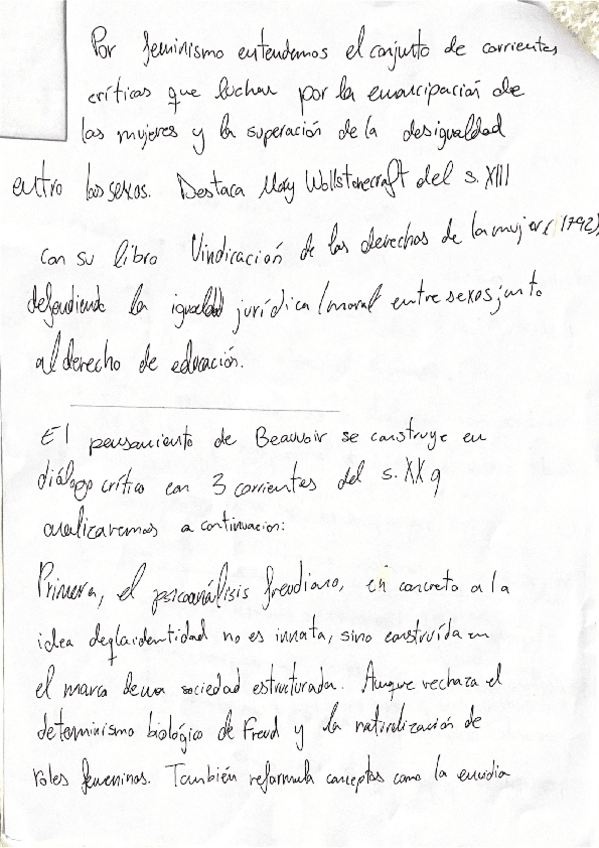 Por feminismo entendemos el conjunto de corrientes
críticas que luchan por la emancipación de
las mujeres y la superación de la desigualdad
entro los sexos. Destaca Mary Wollstonecraft del s. XIII
con su libro Vindicación de los derechos de la mujer (1792),
defendiendo la igualdad jurídica/moral entre sexos junto
al derecho de educación.
El pensamiento de Beauvoir se construye en
diálogo crítico con 3 corrientes del s. XX q
analizaremos a continuacion:
Primera, el psicoanálisis freudiano, en concreto a la
idea de q la identidad no es innata, sino construída en
el marco de una sociedad estructurada. Aunque rechaza el
determinismo biológico de Freud y la naturalización de
roles femeninos. También reformula conceptos como la envidia